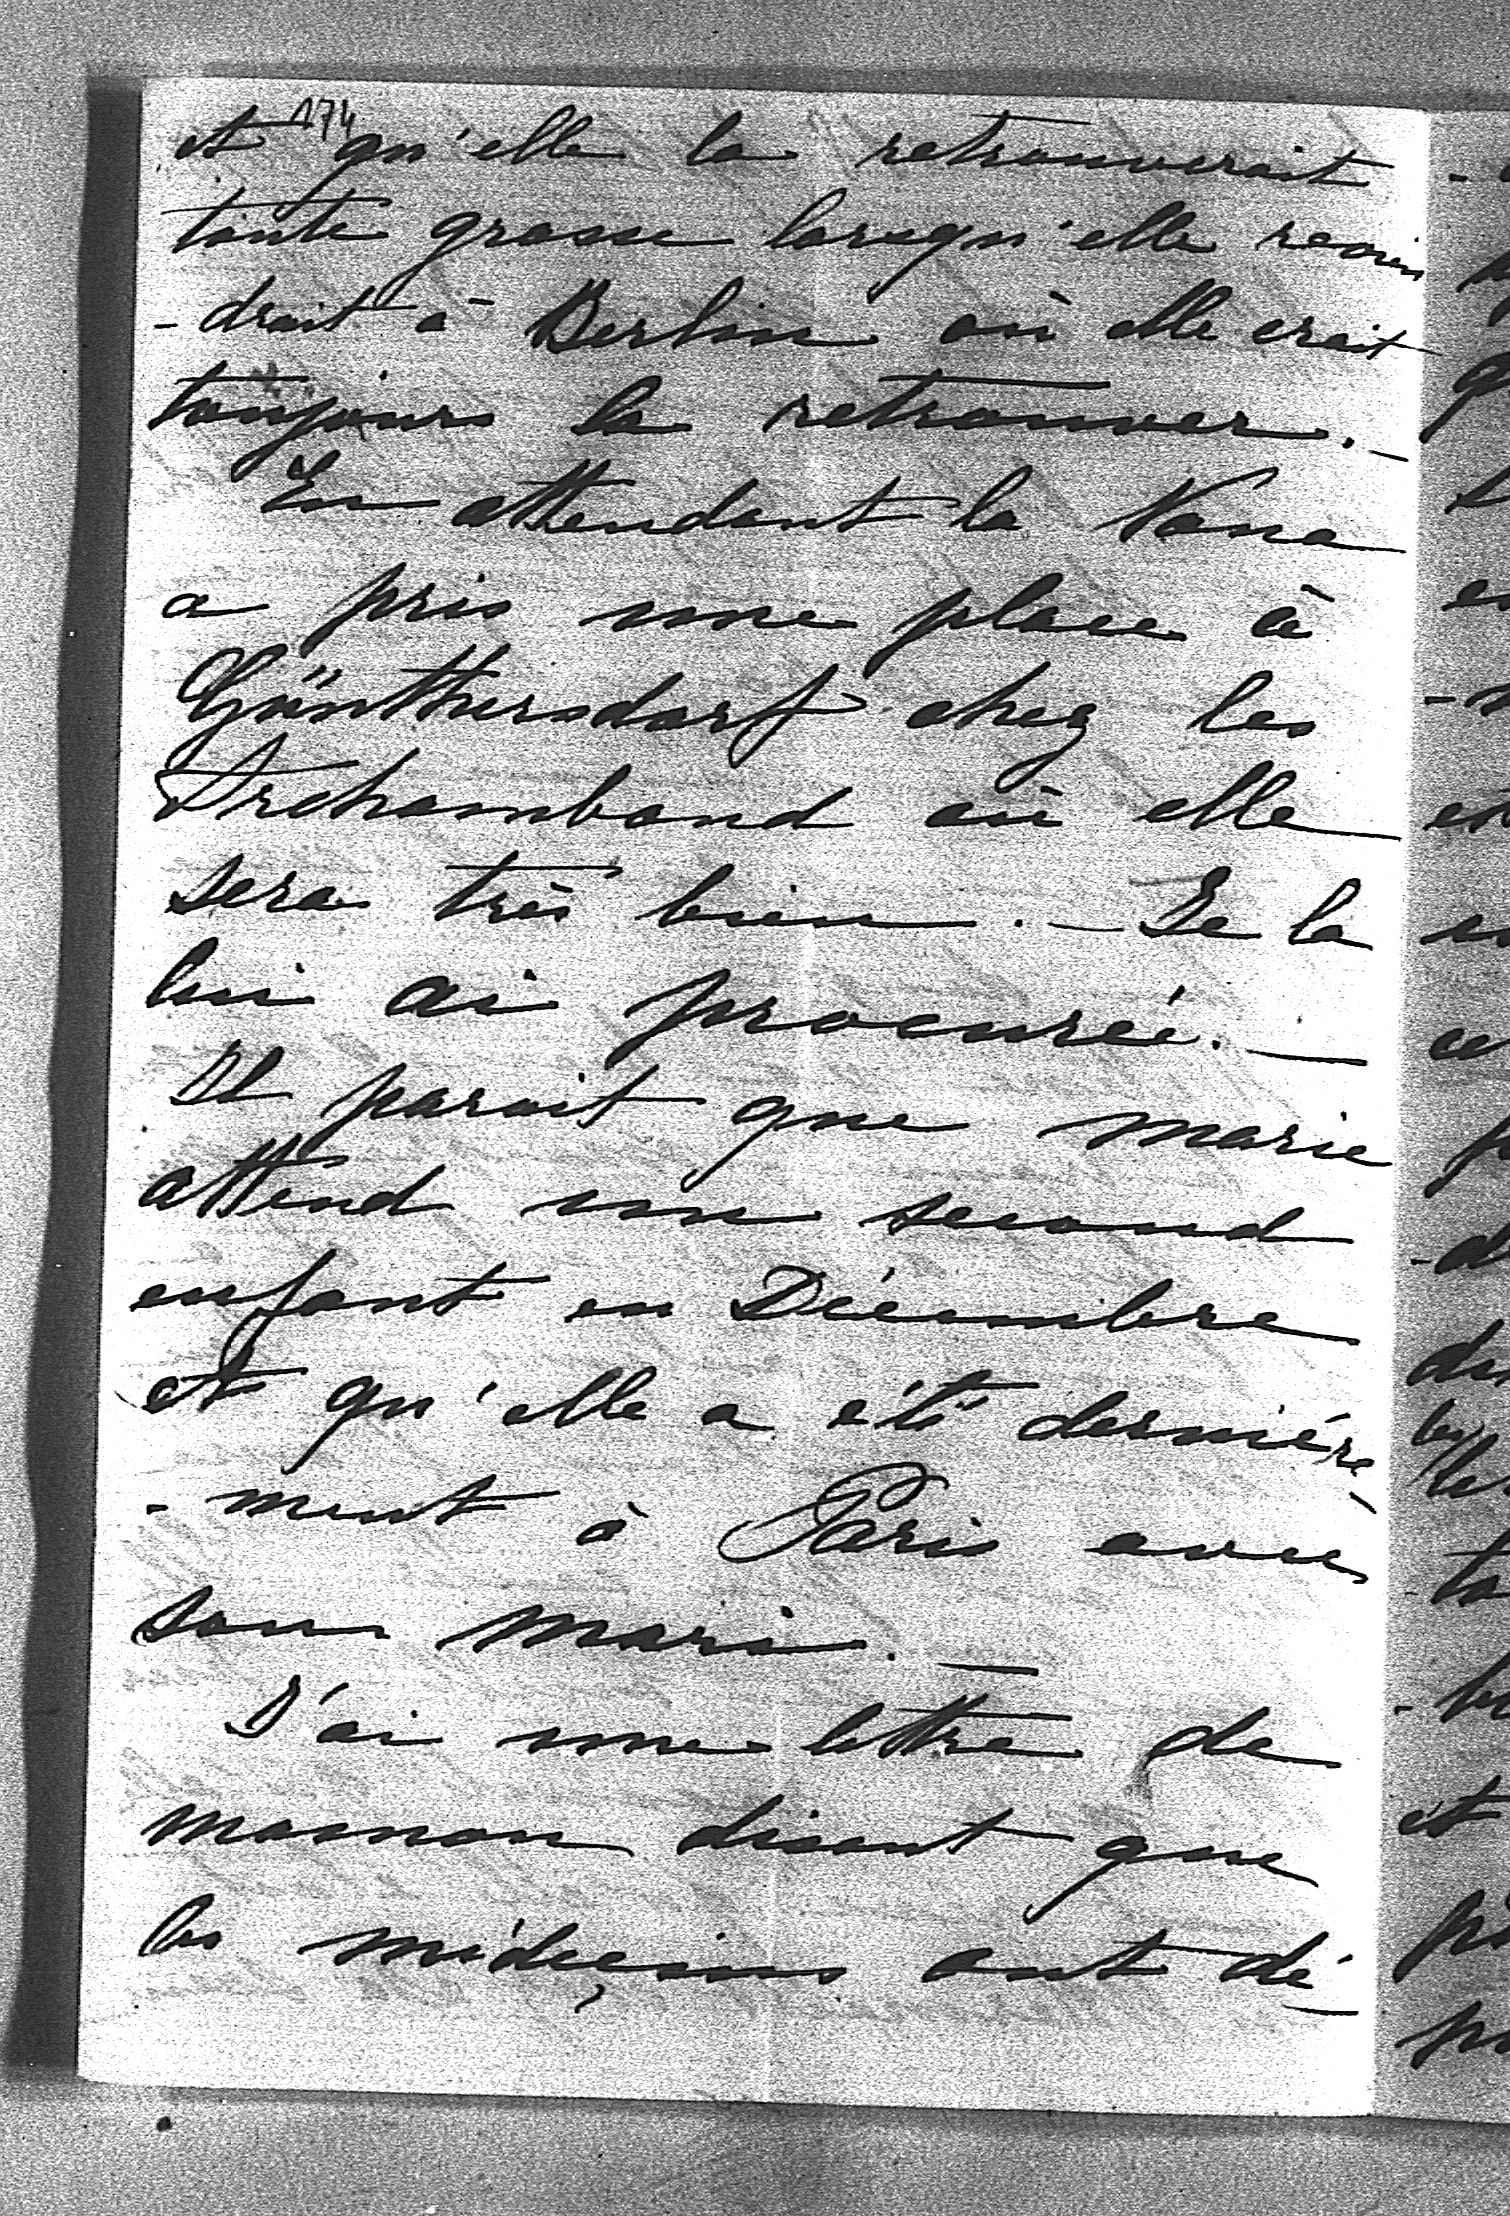 174
et qu'elle la retrouverait
toute grasse lorsqu'elle revien
- drait à Berlin où elle croit
toujours la retrouver. —
En attendant la Nana
a pris une place à
Günthersdorf chez les
Archambaud où elle
sera très bien. — Je la
lui ai procurée. —
Il parait que Marie
attend un second
enfant en Décembre
et qu'elle a été dernière
- ment à Paris avec
son mari. —
J'ai une lettre de
maman disant que
les médeçins ont dé